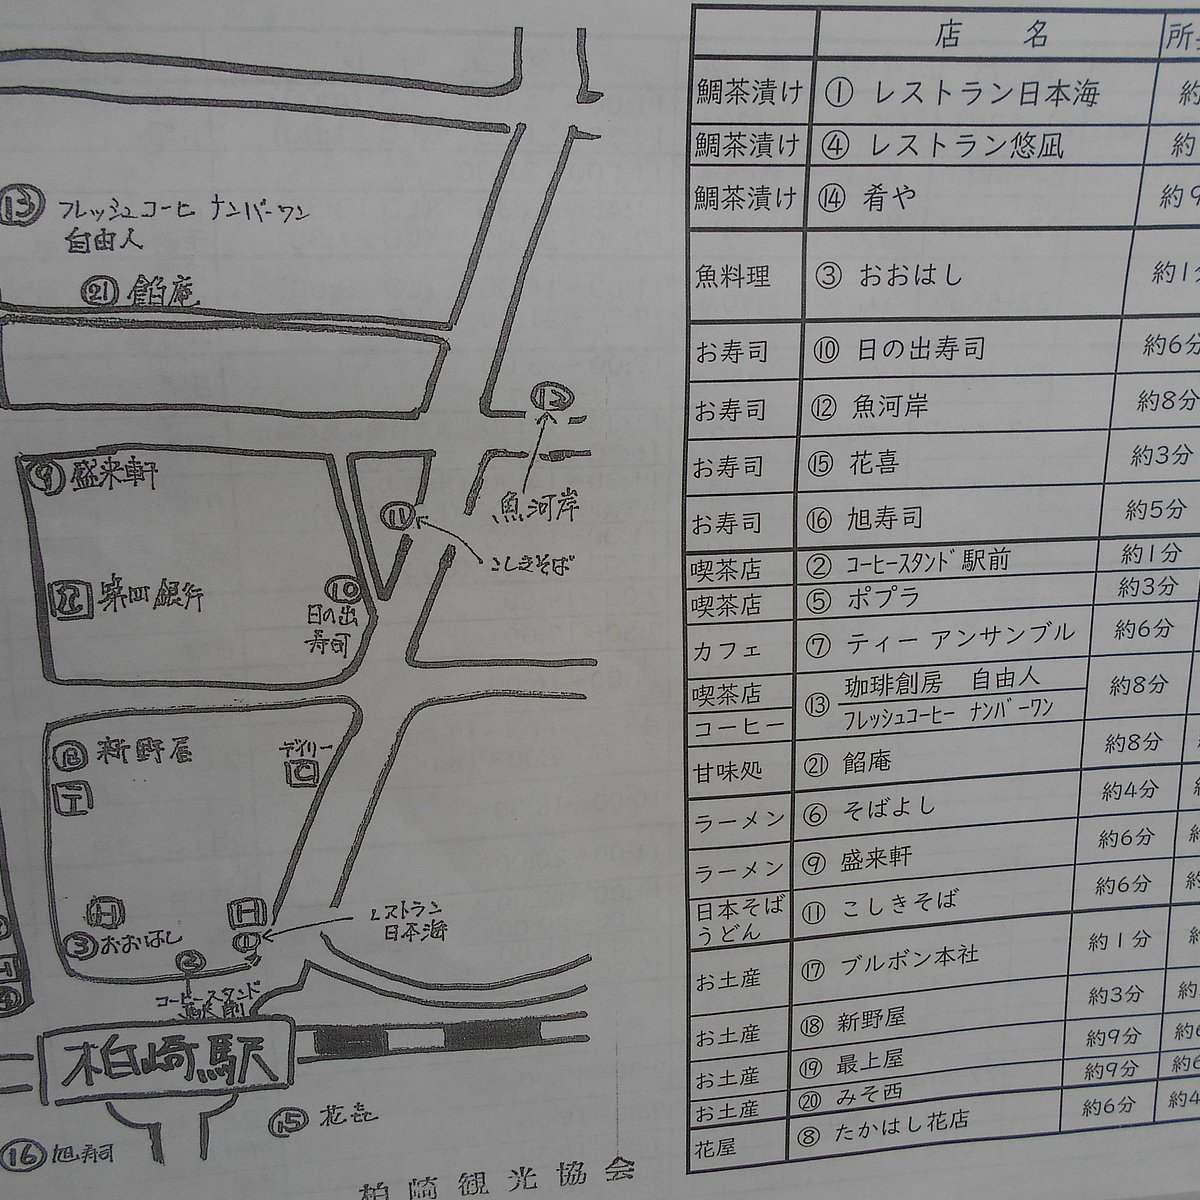 ⑬ フレッシュコーヒ ナンバーワン
自由人
㉑ 餡庵
⑫
魚河岸
⑨ 盛来軒
⑪
こしきそば
第四銀行
⑩
日の出
寿司
⑱ 新野屋
〒
デイリー
C
H
H
③ おおはし
①
レストラン
日本海
②
コーヒースタンド
駅前
④
柏崎駅
⑮ 花喜
⑯ 旭寿司
柏崎観光協会
店 名
鯛茶漬け ① レストラン日本海 約
鯛茶漬け ④ レストラン悠凪 約
鯛茶漬け ⑭ 肴や 約9
魚料理 ③ おおはし 約1
お寿司 ⑩ 日の出寿司 約6分
お寿司 ⑫ 魚河岸 約8分
お寿司 ⑮ 花喜 約3分
お寿司 ⑯ 旭寿司 約5分
喫茶店 ② コーヒースタンド駅前 約1分
喫茶店 ⑤ ポプラ 約3分
カフェ ⑦ ティー アンサンブル 約6分
喫茶店 ⑬ 珈琲創房 自由人 約8分
コーヒー フレッシュコーヒー ナンバーワン
甘味処 ㉑ 餡庵 約8分
ラーメン ⑥ そばよし 約4分
ラーメン ⑨ 盛来軒 約6分
日本そば
うどん ⑪ こしきそば 約6分
お土産 ⑰ ブルボン本社 約1分
お土産 ⑱ 新野屋 約3分
お土産 ⑲ 最上屋 約9分
お土産 ⑳ みそ西 約9分
花屋 ⑧ たかはし花店 約6分